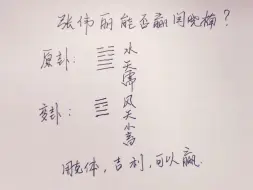 张伟丽能否赢闫晓楠？
原卦： 水
天
需
变卦： 风
天
小
畜
用克体，吉利，可以赢.